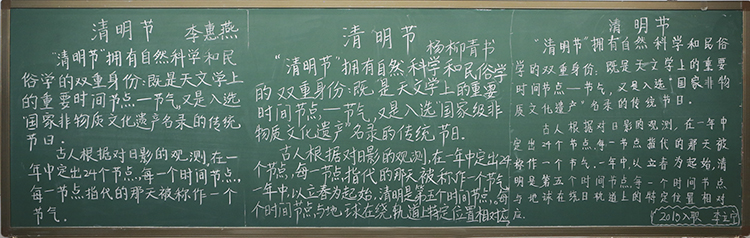 清明节 李惠燕
“清明节”拥有自然科学和民
俗学的双重身份:既是天文学上
的重要时间节点—节气,又是入选
“国家非物质文化遗产”名录的传统
节日。
古人根据对日影的观测,在一
年中定出24个节点,每一个时间节点,
每一节点指代的那天被称作一个
节气.
清明节 杨柳青书
“清明节”拥有自然科学和民俗学
的双重身份:既是天文学上的重要
时间节点—节气,又是入选“国家级非
物质文化遗产”名录的传统节日.
古人根据对日影的观测,在一年中定出24
个节点,每一节点指代的那天被称作一个节气.
一年中,以立春为起始,清明是第五个时间节点,每
个时间节点与地球在绕轨道上特定位置相对应.
清明节
“清明节”拥有自然科学和民俗
学的双重身份:既是天文学上的重要
时间节点—节气,又是入选“国家非物
质文化遗产”名录的传统节日.
古人根据对日影的观测,在一年中
定出24个节点,每一节点指代的那天被
称作一个节气.一年中,以立春为起始,清
明是第五个时间节点,每一个时间节点
与地球在绕日轨道上的特定位置相对
应.
2015入职 李立宁